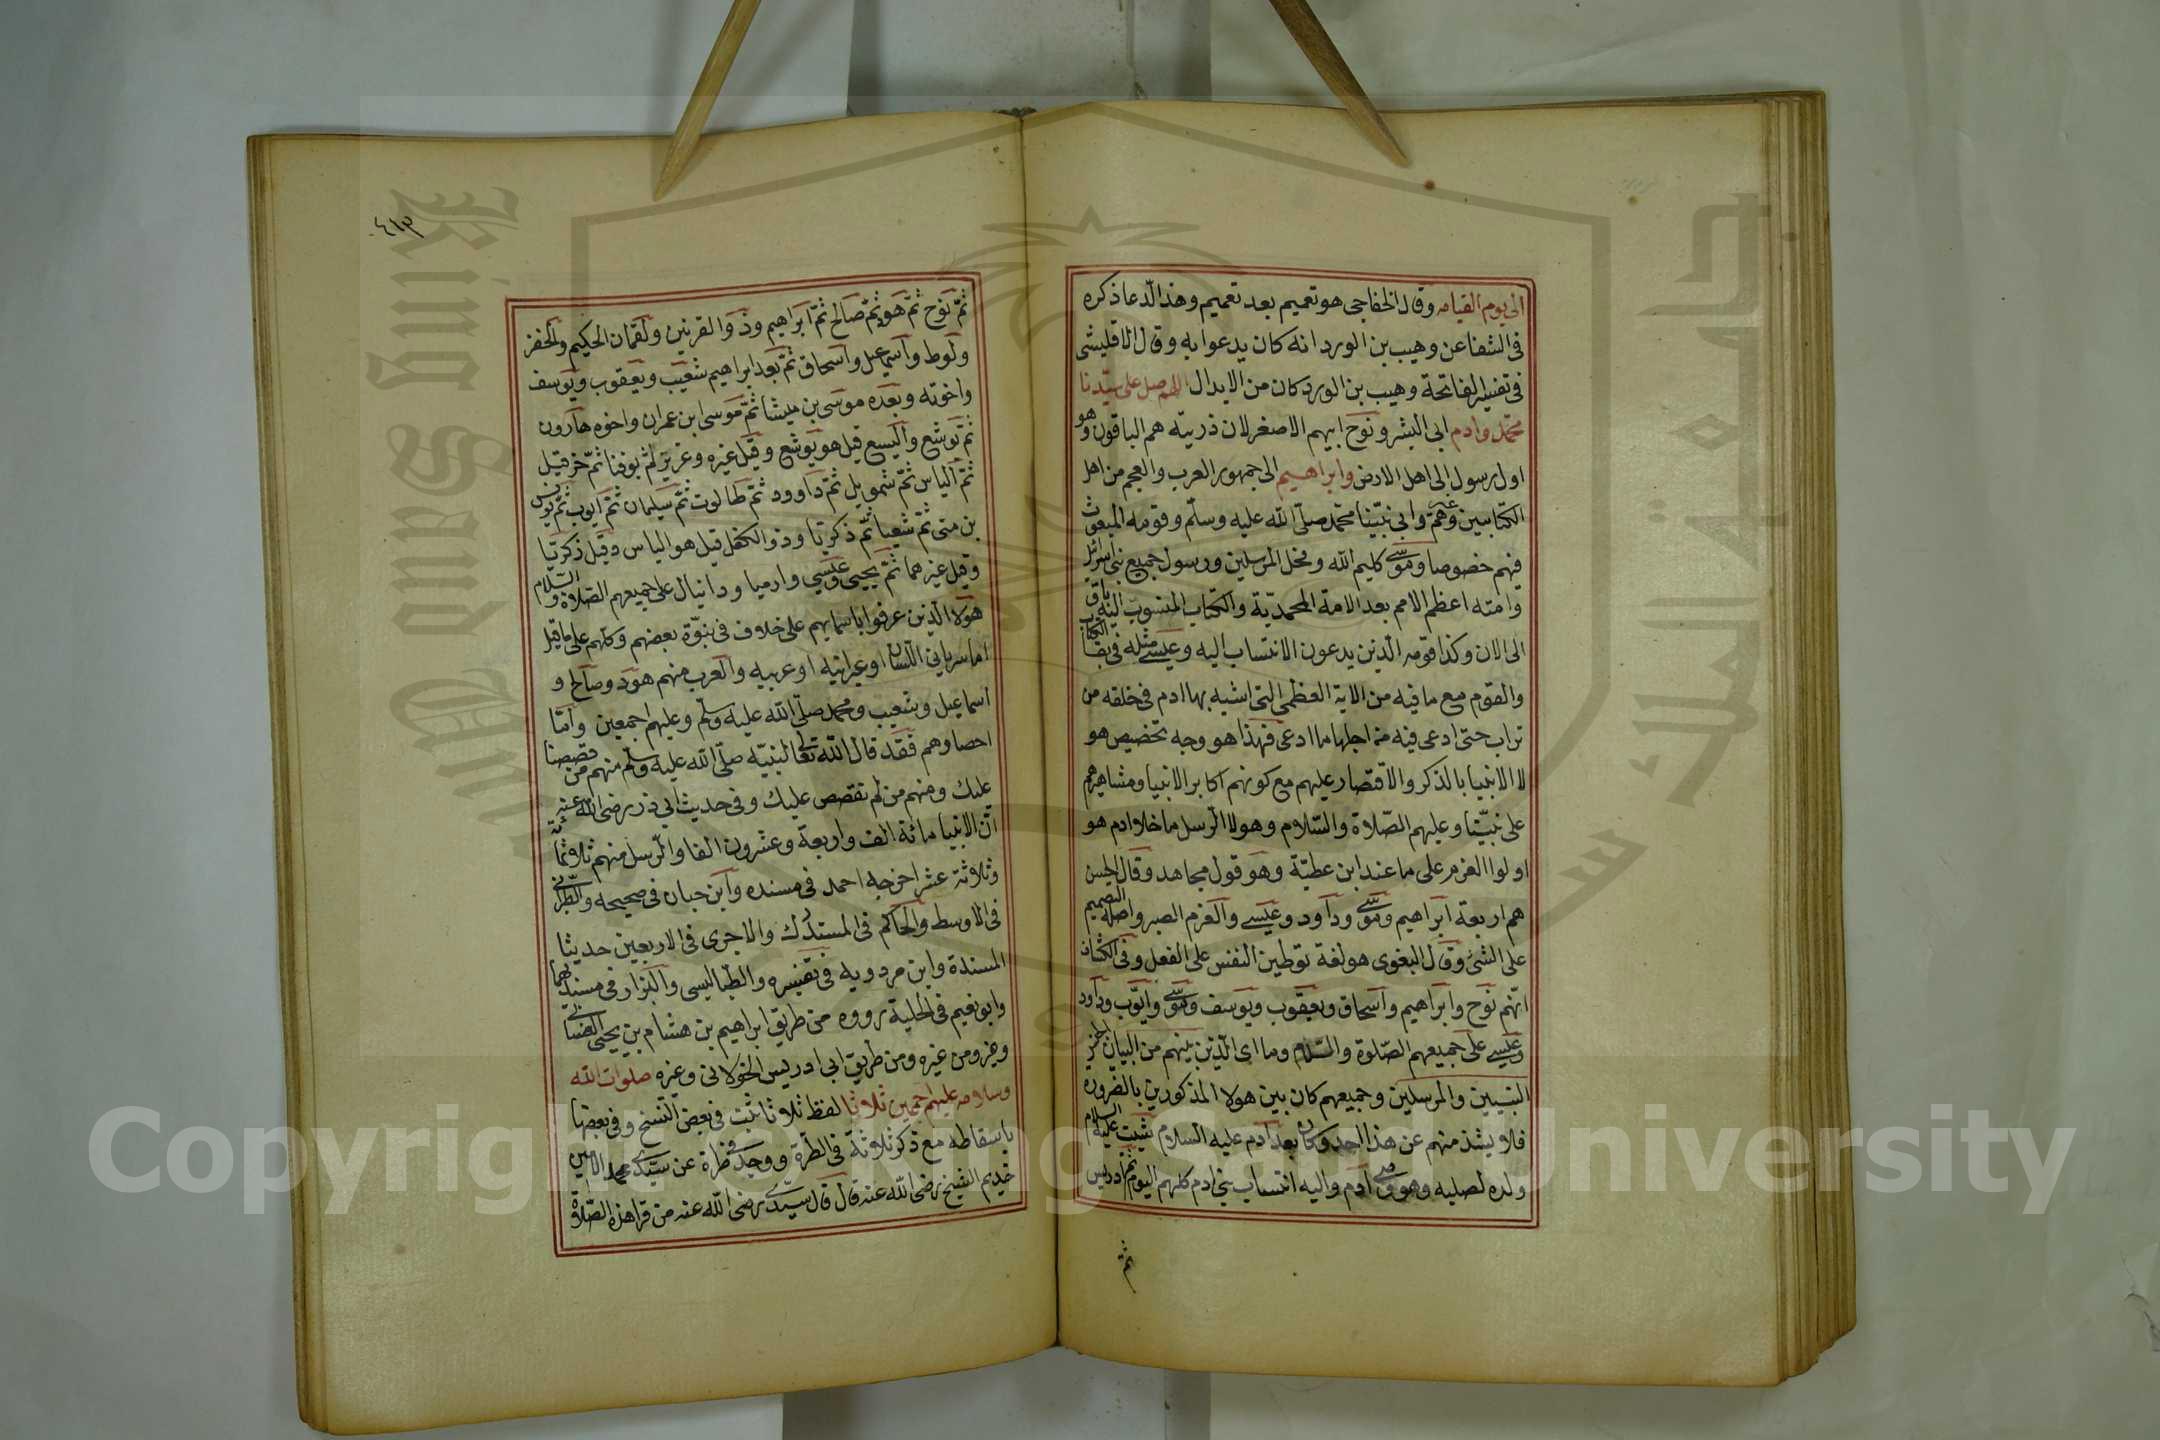 الى يوم القيامه وقال الخفاجى هو تعميم بعد تعميم وهذا الدعا ذكره
فى الشفا عن وهيب بن الورد انه كان يدعوا به وقال الاقليشى
فى تفسير الفاتحة وهيب بن الورد كان من الابدال اللهم صل على سيدنا
محمد وادم ابى البشر ونوح ابيهم الاصغر لان ذريته هم الباقون وهو
اول رسول الى اهل الارض وابراهيم الى جمهور العرب والعجم من اهل
الكتابين وغيرهم وابى نبينا محمد صلى الله عليه وسلم وقومه المبعوث
فيهم خصوصا وموسى كليم الله وفحل المرسلين ورسول جميع بنى اسرائل
وامته اعظم الامم بعد الامة المحمدية والكتاب المنسوب اليه باق
الى الان وكذا قومه الذين يدعون الانتساب اليه وعيسى مثله فى بقا الكتاب
والقوم مع ما فيه من الاية العظمى التى اشبه بها ادم فى خلقه من
تراب حتى ادعى فيه من اجلها ما ادعى فهذا هو وجه تخصيص هو
لا الانبيا بالذكر والاقتصار عليهم مع كونهم اكابر الانبيا ومشاهيرهم
على نبينا وعليهم الصلاة والسلام وهولا الرسل ما خلا ادم هو
اولوا العزم على ما عند ابن عطية وهو قول مجاهد وقال الحسن
هم اربعة ابراهيم وموسى وداود وعيسى والعزم الصبر واصله التصميم
على الشئ وقال البغوى هو لغة توطين النفس على الفعل وفى الكشاف
انهم نوح وابراهيم واسحاق ويعقوب ويوسف وموسى وايوب وداود
وعيسى على جميعهم الصلوة والسلام وما اى الذين بينهم من البيان
النبيين والمرسلين وجميعهم كان بين هولا المذكورين بالضروره
فلا يشذ منهم عن هذا احد وكان بعد ادم عليه السلام شيث عليه السلام
ولده لصلبه وهو وصى آدم واليه انتساب بنى ادم كلهم اليوم ثم ادريس
ثم
٤١٣
ثم نوح ثم هود ثم صالح ثم ابراهيم وذو القرنين ولقمان الحكيم والخضر
ولوط واسماعيل واسحاق ثم بعد ابراهيم شعيب ويعقوب ويوسف
واخوته وبعده موسى بن ميشا ثم موسى ابن عمران واخوه هارون
ثم يوشع واليسع قيل هو يوشع وقيل غيره وعزير ثم يوفنا ثم حزقيل
ثم الياس ثم شمويل ثم داوود ثم طالوت ثم سليمان ثم ايوب ثم يونس
بن متى ثم شعيا ثم ذكريا وذو الكفل قيل هو الياس وقيل ذكريا
وقيل غيرهما ثم يحيى وعيسى وارميا ودانيال على جميعهم الصلاة والسلام
هولا الذين عرفوا باسمايهم على خلاف فى نبوة بعضهم وكلهم على ما قيل
اما سريانى اللسان او عبرانيه او عربيه والعرب منهم هود وصالح و
اسماعيل وشعيب ومحمد صلى الله عليه وسلم وعليهم اجمعين واما
احصاوهم فقد قال الله تعالى لنبيه صلى الله عليه وسلم منهم من قصصنا
عليك ومنهم من لم نقصص عليك وفى حديث ابى ذر رضى الله عنه
ان الانبيا مائة الف واربعة وعشرون الفا والرسل منهم ثلاثمائة
وثلاثة عشر اخرجه احمد فى مسنده وابن حبان فى صحيحه والطبرانى
فى الاوسط والحاكم فى المستدرك والاجرى فى الاربعين حديثا
المسندة وابن مردويه فى تفسيره والطيالسى والبزار فى مسنديهما
وابو نعيم فى الحلية رووه من طريق ابراهيم بن هشام بن يحيى الغسانى
وغيره ومن غيره ومن طريق ابى ادريس الخولانى وغيره صلوات الله
وسلامه عليهم اجمعين ثلاثا لفظ ثلاثا ثبت فى بعض النسخ وفى بعضها
باسقاطه مع ذكر ثلاثة فى الطرة ووجد فى طرة عن سيدى محمد الامين
خديم الشيخ رضى الله عنه قال قال سيدى رضى الله عنه من قرا هذه الصلاة
Copyright © King Saud University
King Saud University
جامعة الملك سعود